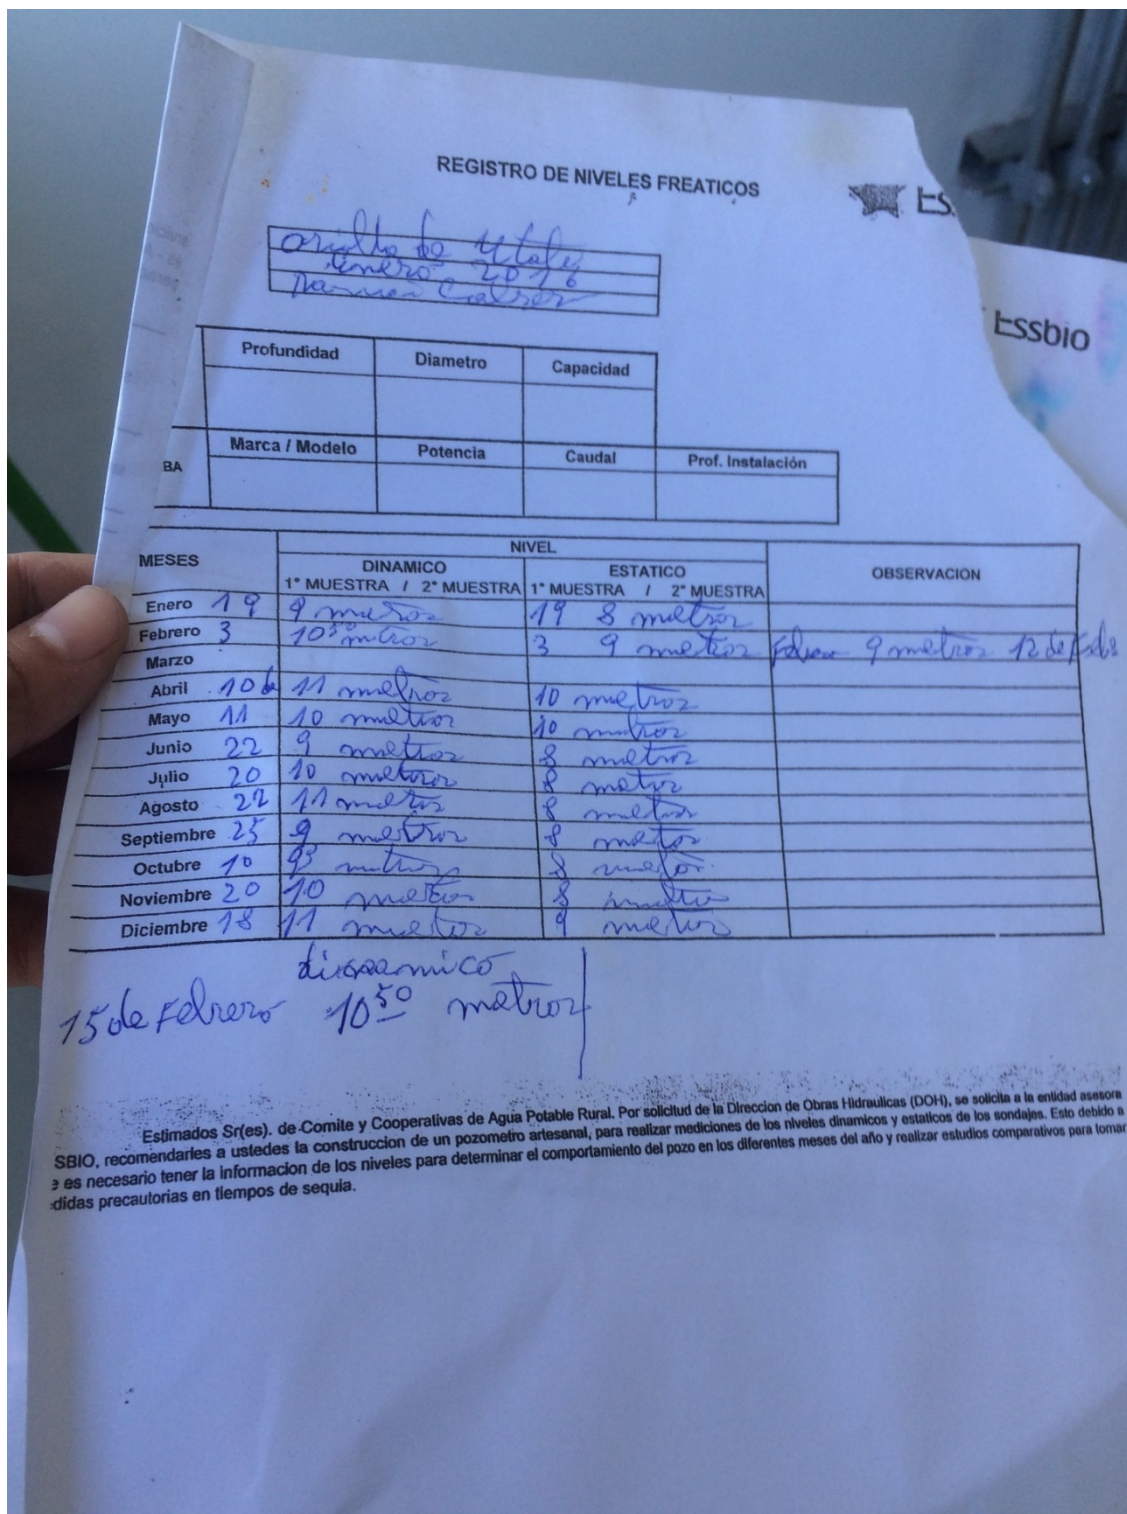 REGISTRO DE NIVELES FREATICOS
ES
Essbio
de
Enero 2016
Profundidad Diametro Capacidad
BA Marca / Modelo Potencia Caudal Prof. Instalación
MESES NIVEL OBSERVACION
DINAMICO ESTATICO
1° MUESTRA / 2° MUESTRA 1° MUESTRA / 2° MUESTRA
Enero 19 9 metros 19 8 metros
Febrero 3 10 50 metros 3 9 metros Febrero 9 metros 12 de
Marzo
Abril 10 11 metros 10 metros
Mayo 11 10 metros 10 metros
Junio 22 9 metros 8 metros
Julio 20 10 metros 8 metros
Agosto 22 11 metros 8 metros
Septiembre 25 9 metros 8 metros
Octubre 10 metros 8 metros
Noviembre 20 10 metros 8 metros
Diciembre 18 11 metros 9 metros
dinamico
15 de Febrero 10 50 metros
Estimados Sr(es). de Comite y Cooperativas de Agua Potable Rural. Por solicitud de la Direccion de Obras Hidraulicas (DOH), se solicita a la entidad asesora
SBIO, recomendarles a ustedes la construccion de un pozometro artesanal, para realizar mediciones de los niveles dinamicos y estaticos de los sondajes. Esto debido a
e es necesario tener la informacion de los niveles para determinar el comportamiento del pozo en los diferentes meses del año y realizar estudios comparativos para tomar
didas precautorias en tiempos de sequia.